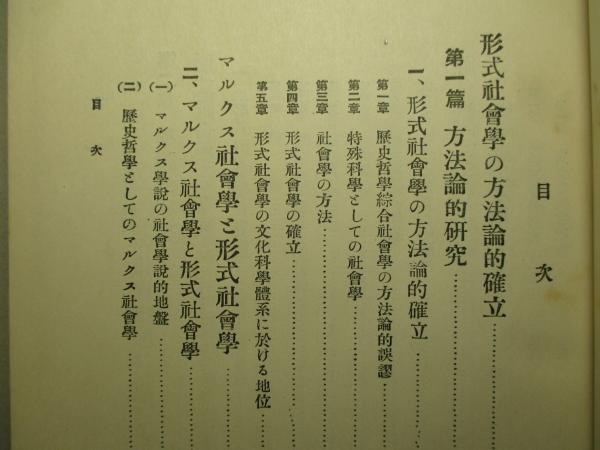 目次
形式社會學の方法論的確立
第一篇 方法論的研究
一、形式社會學の方法論的確立
第一章 歷史哲學綜合社會學の方法論的誤謬
第二章 特殊科學としての社會學
第三章 社會學の方法
第四章 形式社會學の確立
第五章 形式社會學の文化科學體系に於ける地位
マルクス社會學と形式社會學
二、マルクス社會學と形式社會學
(一) マルクス學說の社會學說的地盤
(二) 歷史哲學としてのマルクス社會學
目次